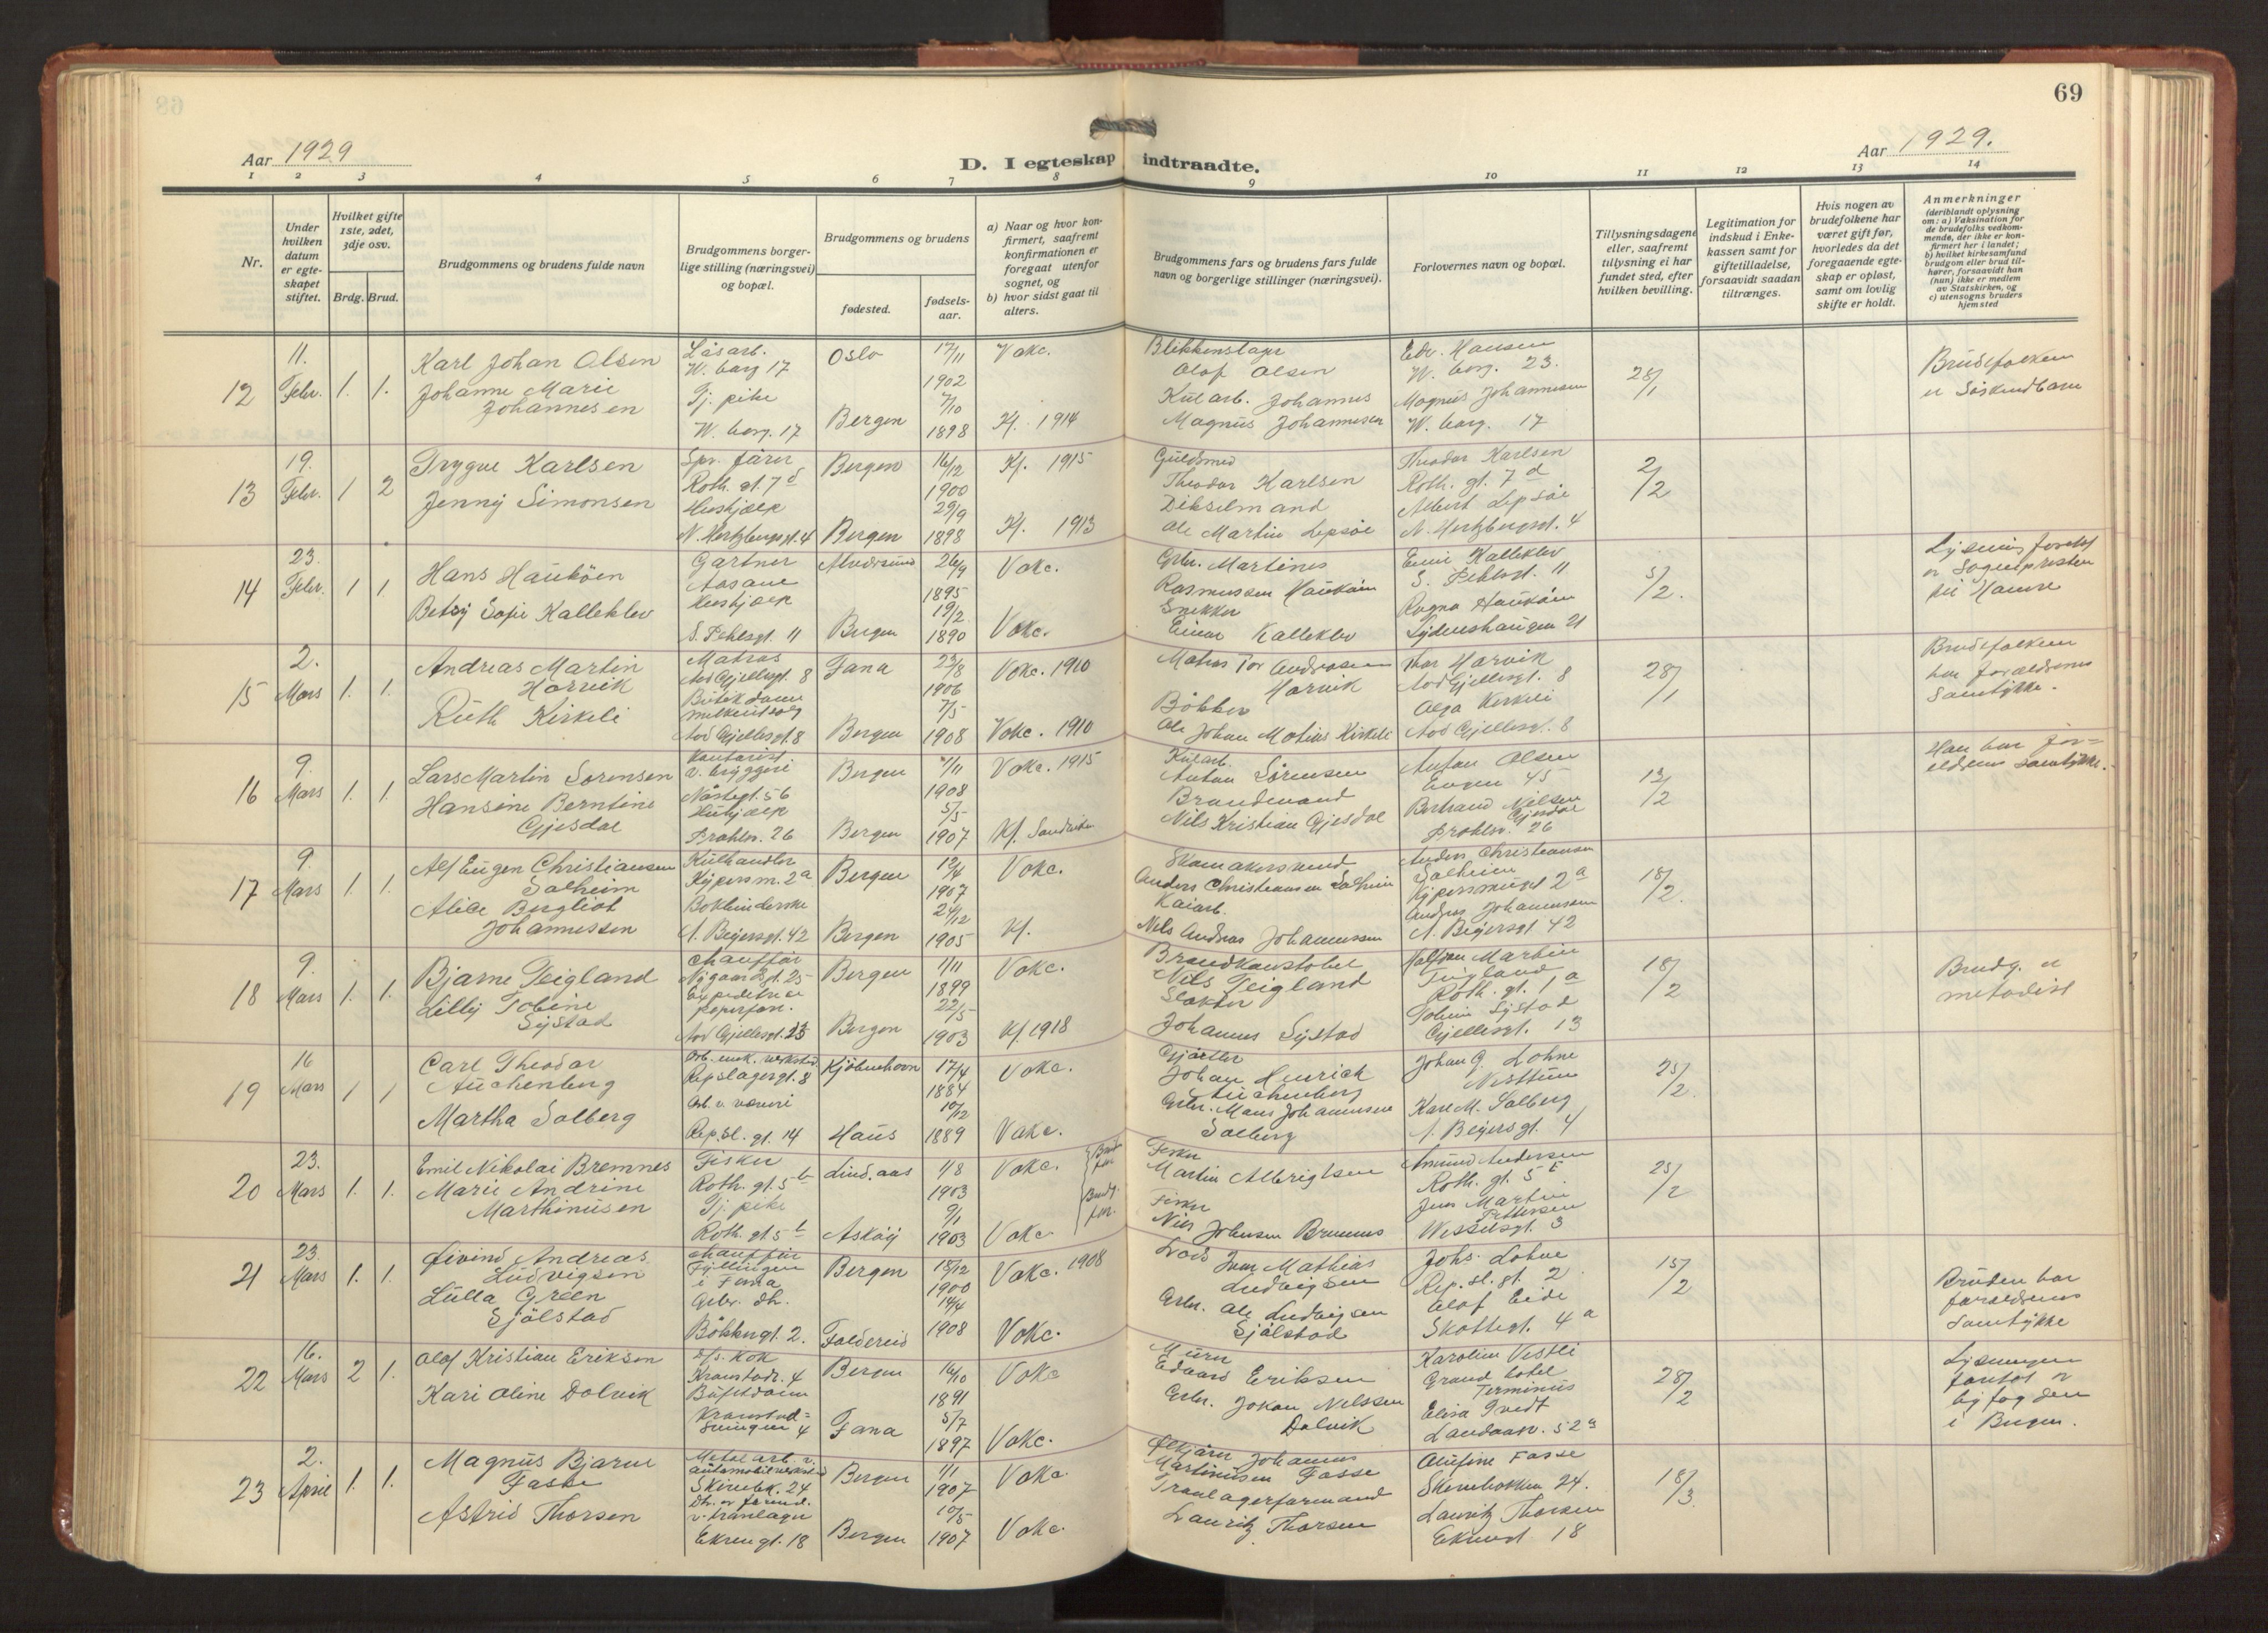 69
Aar 1929
D. I egteskap indtraadte.
Aar 1929.
1 2 3 4 5 6 7 8 9 10 11 12 13 14
Nr.
Under hvilken datum er egte-skapet stiftet.
Hvilket gifte 1ste, 2det, 3dje osv.
Brdg. Brud.
Brudgommens og brudens fulde navn
Brudgommens borger-lige stilling (næringsvei) og bopæl.
Brudgommens og brudens
fødested.
fødsels-aar.
a) Naar og hvor kon-firmert, saafremt konfirmationen er foregaat utenfor sognet, og
b) hvor sidst gaat til alters.
Brudgommens fars og brudens fars fulde navn og borgerlige stillinger (næringsvei).
Forlovernes navn og bopæl.
Tillysningsdagene eller, saafremt tillysning ei har fundet sted, efter hvilken bevilling.
Legitimation for indskud i Enke-kassen samt for giftetilladelse, forsaavidt saadan tiltrænges.
Hvis nogen av brudefolkene har været gift før, hvorledes da det foregaaende egte-skap er opløst, samt om lovlig skifte er holdt.
Anmerkninger
(deriblandt oplysning om: a) Vaksination for de brudefolks vedkom-mende, der ikke er kon-firmert her i landet; b) hvilket kirkesamfund brudgom eller brud til-hører, forsaavidt han (hun) ikke er medlem av Statskirken, og c) utensogns bruders hjemsted
12 11. Febr. 1. 1.
Karl Johan Olsen
Johanne Marie
Johannesen
Løsarb.
W. borg 17
Tj. pike
W. borg. 17
Oslo
Bergen
17/11 1902
7/10 1898
Vokc.
Kf. 1914
Blikkenslager
Olaf Olsen
Kularb. Johannes
Magnus Johannesen
Edv. Hansen
W. borg. 23.
Magnus Johannesen
W. borg. 17
28/1
Brudefolkene
er Søskendbarn
13 19. Febr. 1 2
Trygve Karlsen
Jenny Simonsen
Roth. gt. 7 d
Hushjælp
N. Hertzbergsgt. 4
Bergen
Bergen
16/12 1900
29/9 1898
Kf. 1915
Kf. 1913
Guldsmed
Theodor Karlsen
Dikselmand
Ole Martin Lepsøe
Theodor Karlsen
Roth. gt. 7 d
Albert Lepsøe
N. Hertzbergsgt. 4
2/2
14 23. Febr. 1 1
Hans Haukøen
Betzy Sofie Kalleklev
Gartner
Aasane
Hushjælp
S. Pihlsgt. 11
Alversund
Bergen
26/9 1895
19/2 1890
Vokc.
Vokc.
Grbr. Martines
Rasmussen Haukøen
Snekker
Einar Kalleklev
Emil Kalleklev
S. Pihlsgt. 11
Ragna Haukøen
Sydneshaugen 21
5/2.
Lysning foretat
av Sognepresten
til Hamre
15 2. Mars 1. 1.
Andreas Martin
Harvik
Ruth Kirkeli
Matros
Aad Gjellesgt. 8
Butikdame
melkeutsalg
Aad Gjellesgt. 8
Fana
Bergen
23/8 1906
7/5 1908
Vokc. 1910
Vokc. 1910
Matros Tor Andreasen
Harvik
Bøkker
Ole Johan Matias Kirkeli
Thor Harvik
Aad Gjellesgt. 8
Olga Kirkeli
Aad Gjellesgt. 8
28/1
Brudefolkene
har forældrenes
Samtykke.
16 9. Mars 1. 1.
Lars Martin Sørensen
Hansine Berntine
Gjesdal
Kontorist
v. bryggeri
Nøstegt. 56
Hushjælp
Prahlsv. 26
Bergen
Bergen
7/11 1908
5/5 1907
Vokc. 1915
Kf. Sandviken
Kularb.
Anton Sørensen
Brandmand
Nils Kristian Gjesdal
Anton Olsen
Engen 45
Bertrand Nilsen
Gjesdal
Prahlsv. 26
13/2
Han har for=
ældrenes samtykke.
17 9. Mars 1 1.
Alf Eugen Christiansen
Solheim
Alice Bergliot
Johannessen
Kulhandler
Kypersm. 2a
Bokbinderske
A. Beyersgt. 42
Bergen
Bergen
12/4 1907
24/12 1905
Vokc.
Kf.
Skomakersvend
Anders Christiansen Solheim
Kaiarb.
Nils Andreas Johannessen
Anders Christiansen
Solheim
Kypersmuget 2a
Andreas Johannessen
A. Beyersgt 42
18/2.
18 9. Mars 1. 1.
Bjarne Teigland
Lilly Tobine
Systad
Chauffør
Nygaardsgt. 25
Expeditrice
papirforr.
Aad Gjellesgt. 23
Bergen
Bergen
1/11 1899
22/5 1903
Vokc.
Kf 1918
Brandkonstabel
Nils Teigland
Slakter
Johannes Systad
Halfdan Martin
Teigland
Roth. gt. 1 a
Systad
Gjellesgt. 13
18/2
Brudg. er
metodist
19 16 Mars 1 1
Carl Theodor
Auchenberg
Martha Solberg
Arb. mek. verksted
Repslagergt. 8
Arb. v. væveri
Rep.sl. gt. 14
Kjøbenhavn
Haus
17/4 1884
10/12 1889
Vokc.
Vokc.
Gjørtler
Johan Henrich
Auchenberg
Grbr. Mons Johannesen
Solberg
Johan G. Lohne
Nesttun
Karl M. Solberg
A. Beyersgt. 4
25/2.
20 23. Mars 1. 1.
Emil Nikolai Bremnes
Marie Andrine
Marthinusen
Fisker
Roth. gt. 5 b
Tj. pike
Roth. gt. 5 b
Lindaas
Askøy
1/8 1903
9/1 1903
Vokc.
Vokc.
Fisker
Martin Albrigtsen
Fisker
Nils Johnsen Bremnes
Amund Andersen
Roth. gt. 5 b
Jens Martin
Pettersen
Wesselsgt. 3
25/2
21 23. Mars 1. 1.
Øivind Andreas
Ludvigsen
Lulla Green
Sjølstad
Chauffør
Fyllingen
i Fana
Grbr. dtr.
Bøkkergt. 2.
Bergen
Foldereid
18/12 1900
14/4 1908
Vokc. 1908
Vokc.
Lods Ivar Mathias
Ludvigsen
Grbr. Ole Ludvigsen
Sjølstad
Johs. Lohne
Rep.sl.gt. 2
Olaf Eide
Skottegt. 4 a
15/2
Bruden har
forældrenes
Samtykke
22 16. Mars 2 1.
Olaf Kristian Eriksen
Kari Oline Dolvik
d/s. Kok
Kranstadr. 4
Buffetdame
Bergen
Fana
16/10 1891
5/7 1897
Vokc
Vokc.
Murer
Edvard Eriksen
Grbr. Johan Nilssen
Dolvik
Karoline Vestli
Grand hotel
Terminus
Elisa Tvedt
Landaasv. 52 a
28/2
Lysningen
foretat av
byfogden
i Bergen.
23 2. April 1. 1.
Magnus Bjarne
Fasse
Astrid Thorsen
Metalarb. v.
automobilverksted
Skivebk. 24
Dtr. av formd.
v. tranlager
Ekrengt. 18
Bergen
Bergen
1/1 1907
10/5 1907
Vokc.
Vokc.
Johannes
Martinusen Fasse
Tranlagerformand
Lauritz Thorsen
Olufine Fasse
Skivebakken 24.
Lauritz Thorsen
Ekrengt. 18
18/3.